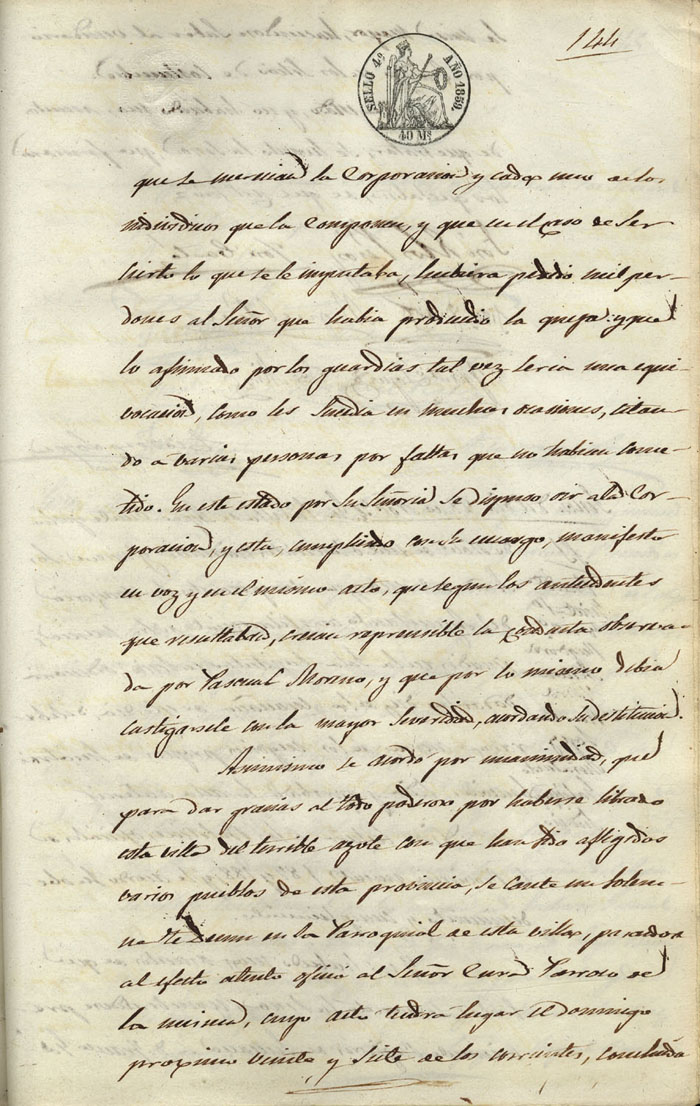 144
SELLO 4º AÑO 1859.
40 Ms
que se merecian la Corporacion y cada uno de los
individuos que la Componen, y que en el caso de Ser
cierto lo que se le imputaba, hubiera pedido mil per-
dones al Señor que habia producido la queja: y que
lo afirmado por los guardias tal vez seria una equi-
vocacion, como les Sucedia en muchas ocasiones, citan-
do a varias personas por faltas que no habian come-
tido. En este estado por Su Señoria Se dispuso oir a la Cor-
poracion, y esta, cumpliendo con Su encargo, manifesto
en voz y en el mismo acto, que segun los antecedentes
que resultaban, creian reprensible la conducta observa-
da por Pascual Moreno, y que por lo mismo debia
castigarsele con la mayor Severidad, acordando Su destitucion.
Asimismo se acordó por unanimidad, que
para dar gracias al todo poderoso por haberse librado
esta villa del terrible azote con que han sido afligidos
varios pueblos de esta provincia, se cante un solem-
ne Te Deum en la Parroquial de esta villa, pasandose
al efecto atento oficio al Señor Cura Parroco de
la misma, cuyo acto tendra lugar el Domingo
proximo veinte y Siete de los corrientes, concluida